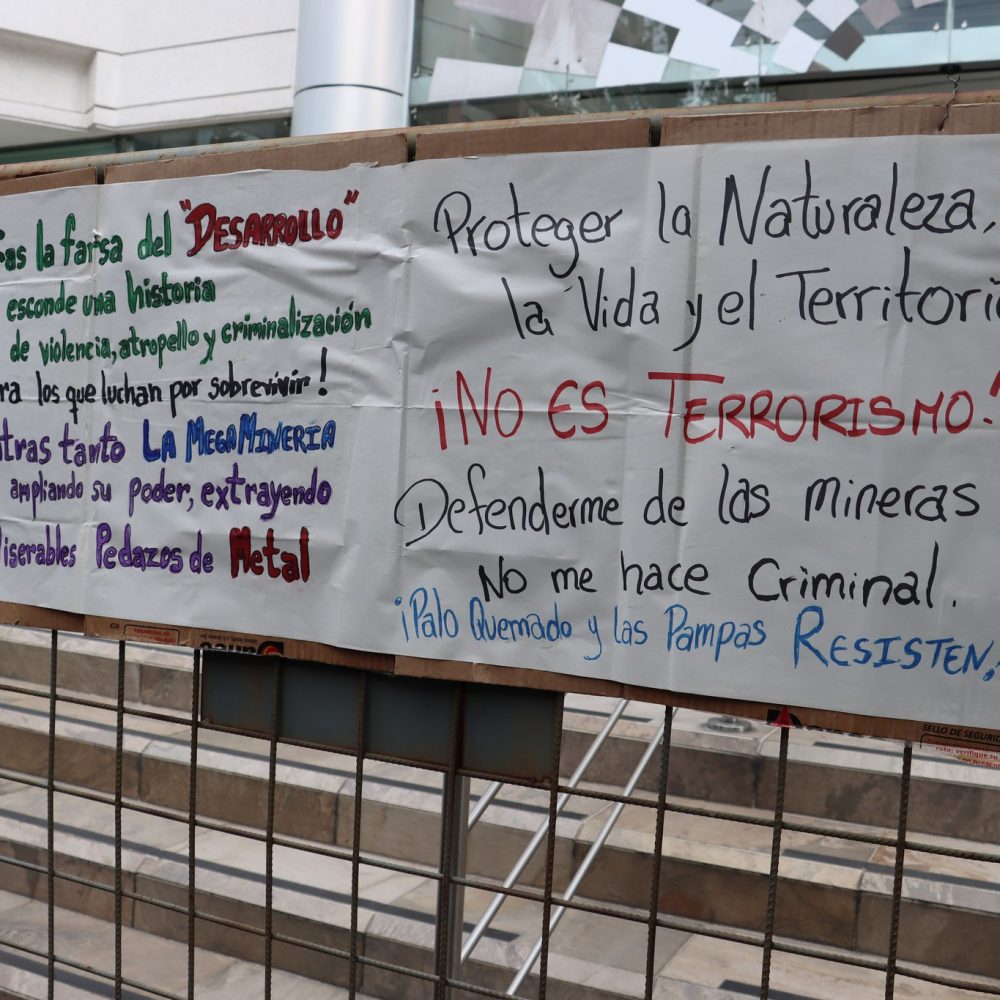 la farsa del "DESARROLLO"
esconde una historia
de violencia, atropello y criminalización
los que luchan por sobrevivir!
tanto LA MEGAMINERIA
ampliando su poder, extrayendo
Pedazos de Metal
Proteger la Naturaleza,
la Vida y el Territorio
¡NO ES TERRORISMO!
Defenderme de las mineras
No me hace Criminal.
¡Palo Quemado y las Pampas RESISTEN!
SELLO DE SEGURIDAD